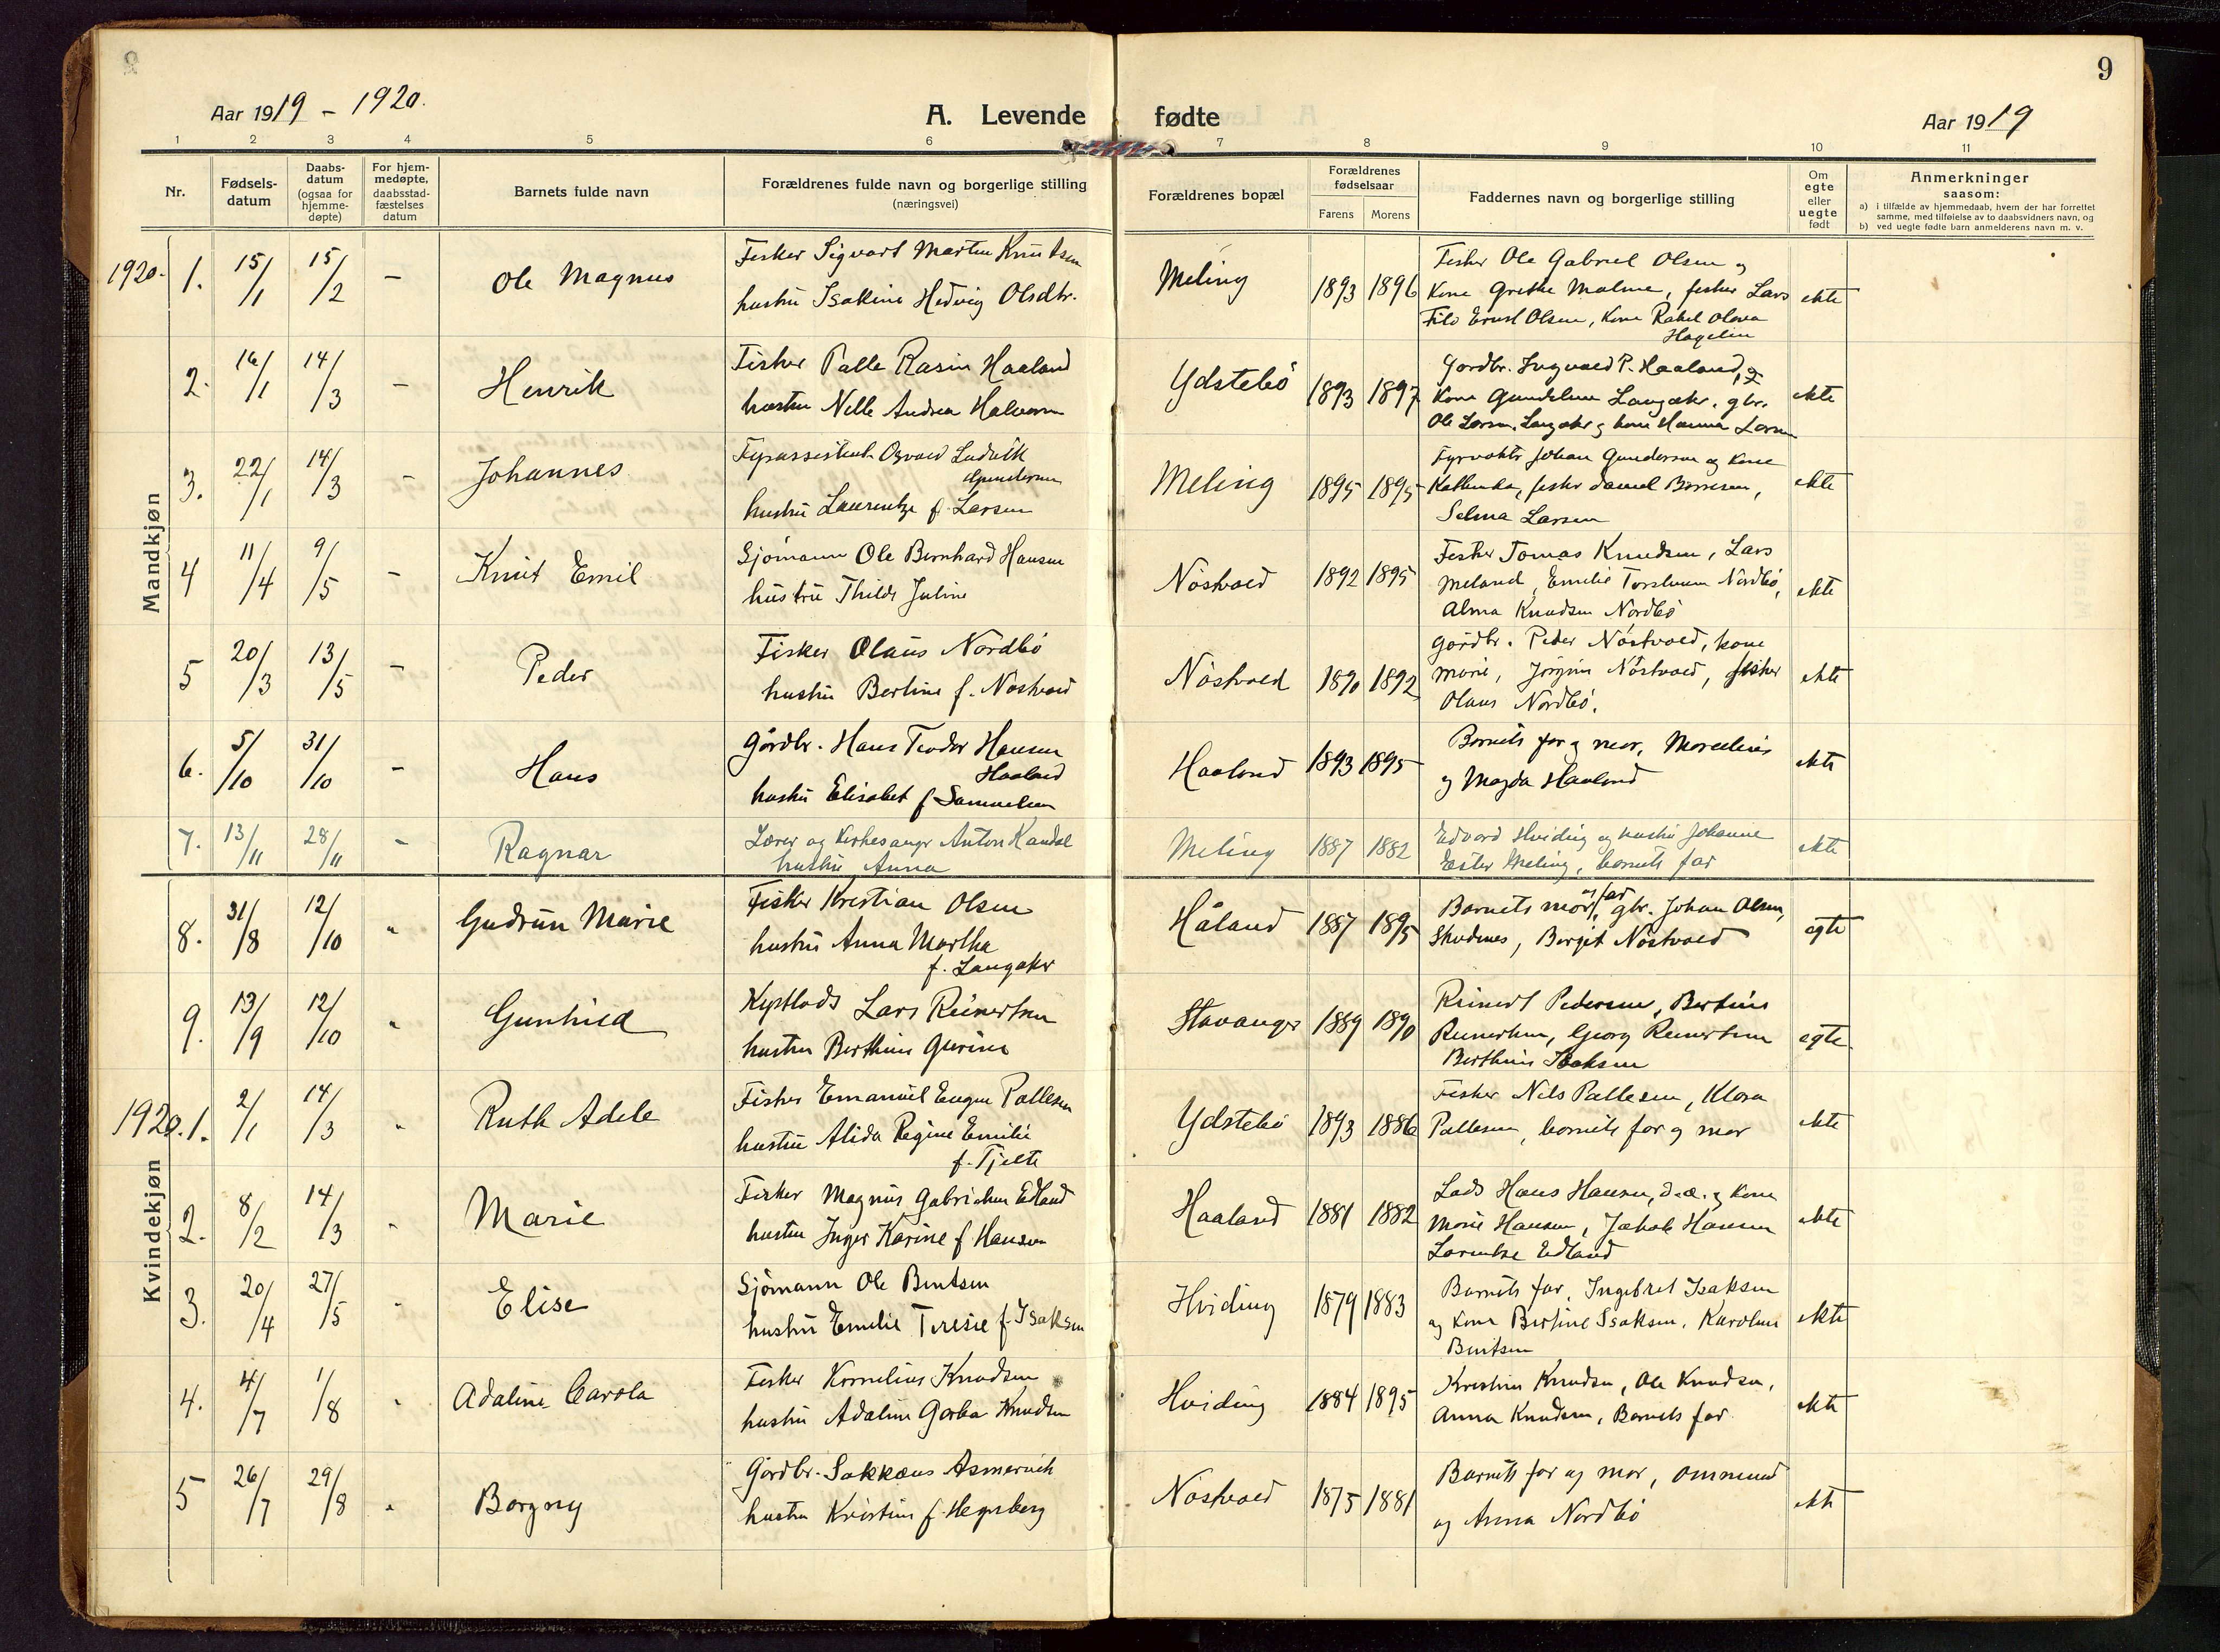 9
Aar 1919 - 1920.
A. Levende fødte
Aar 1919
1 2 3 4 5 6 7 8 9 10 11
Nr.
Fødsels-
datum
Daabs-
datum
(ogsaa for
hjemme-
døpte)
For hjem-
medøpte,
daabsstad-
fæstelses
datum
Barnets fulde navn
Forældrenes fulde navn og borgerlige stilling
(næringsvei)
Forældrenes bopæl
Forældrenes
fødselsaar
Farens Morens
Faddernes navn og borgerlige stilling
Om
egte
eller
uegte
født
Anmerkninger
saasom:
a) i tilfælde av hjemmedaab, hvem der har forrettet
samme, med tilføielse av to daabsvidners navn, og
b) ved uegte fødte barn anmelderens navn m. v.
Mandkjøn
1920. 1. 15/1 15/2 - Ole Magnus
Fisker Sigvart Martin Knutsen
hustru Isakine Hedvig Olsdtr.
Meling 1893 1896
Fisker Ole Gabriel Olsen og
Kone Grethe Malene, fisker Lars
Filo Ernst Olsen, Kone Rakel Olava
Hagelin
ekte
2. 16/1 14/3 - Henrik
Fisker Palle Rasin Haaland
hustru Nelle Andrea Halvorsen
Ydstebö 1893 1897
Gardbr. Ingvald P. Haaland, og
Kone Gundeline Langaker. gbr.
Ole Larsen Langaker og kone Hanna Larsen
ekte
3. 22/1 14/3 - Johannes
Fyrassistent Osvald Ludvik
Gundersen
hustru Laurentze f. Larsen
Meling 1895 1895
Fyrvokter Johan Gundersen og Kone
Kathinka, fisker Daniel Børresen,
Selma Larsen
ekte
4 11/4 9/5 - Knut Emil
Sjömann Ole Bernhard Hansen
hustru Thilde Juline
Nöstvold 1892 1895
Fisker Tomas Knudsen, Lars
Meland, Emilie Torsteinsen Nordbö,
Alma Knudsen Nordbö
ekte
5 20/3 13/5 - Peder
Fisker Olaus Nordbö
hustru Bertine f. Nöstvold
Nöstvold 1890 1892
Gårdbr. Peder Nöstvold, kone
Marie, Jörgine Nöstvold, fisker
Olaus Nordbö.
ekte
6. 5/10 31/10 - Hans
Gårdbr. Hans Teodor Hansen
Haaland
hustru Elisabet f Samuelsen
Haaland 1893 1895
Barnets far og mor, Marselius
og Magda Haaland
ekte
7. 13/11 28/11 - Ragnar
Lærer og Kirkesanger Anton Kandal
hustru Anna
Meling 1887 1882
Edvard Hviding og hustru Johanne
Ester Meling, barnets far
ekte
8. 31/8 12/10 " Gudrun Marie
Fisker Kristian Olsen
hustru Anna Martha
f. Langaker
Håland 1887 1895
Barnets mor og far, gbr. Johan Olsen,
Skudenes, Bergit Nöstvold
egte
9. 13/9 12/10 " Gunhild
Kystlods Lars Reinertsen
hustru Berthine Gurine
Stavanger 1889 1890
Reinert Pedersen, Bertine
Reinertsen, Georg Reinertsen
Berthine Isaksen
egte
Kvindekjøn
1920. 1. 2/1 14/3 " Ruth Adele
Fisker Emanuel Eugen Pallesen
hustru Alida Regine Emilie
f. Tjelte
Ydstebö 1893 1886
Fisker Nils Pallesen, Klara
Pallesen, barnets far og mor
ekte
2. 8/2 14/3 " Marie
Fisker Magnus Gabrielsen Edland
hustru Inger Karine f Hansen
Haaland 1881 1882
Lods Hans Hansen, d.æ. og Kone
Marie Hansen, Jakob Hansen
Larentse Edland
ekte
3. 20/4 27/5 " Elise
Sjömann Ole Bentsen
hustru Emilie Teresie f. Isaksen
Hviding 1879 1883
Barnets far, Ingebret Isaksen
og kone Bertine Isaksen, Karoline
Bentsen
ekte
4. 4/7 1/8 " Adaline Carola
Fisker Kornelius Knudsen
hustru Adaline Garba Knudsen
Hviding 1884 1895
Kristine Knudsen, Ole Knudsen,
Anna Knudsen, Barnets far
ekte
5 26/7 29/8 " Borgny
Gårdbr. Sakkæus Asmervik
hustru Kristine f. Hegreberg
Nöstvold 1875 1881
Barnets far og mor, Ommund
og Anna Nordbö
ekte